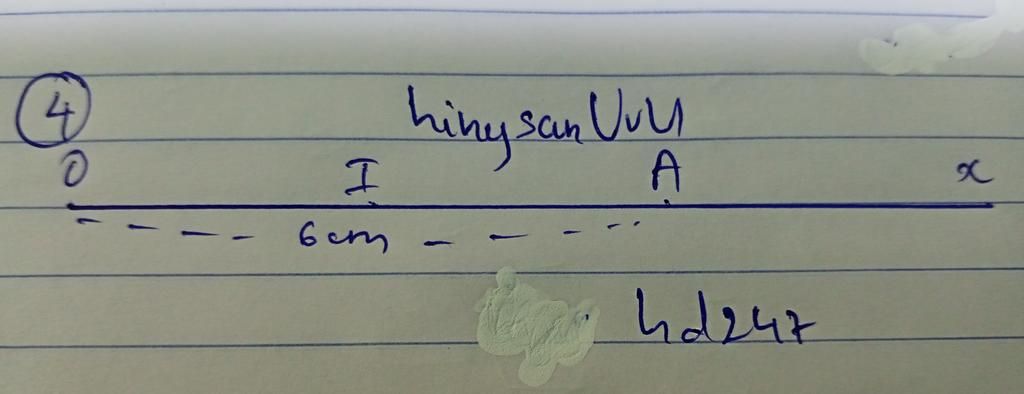 4
hinysanUvU
O I A x
6cm
hd247